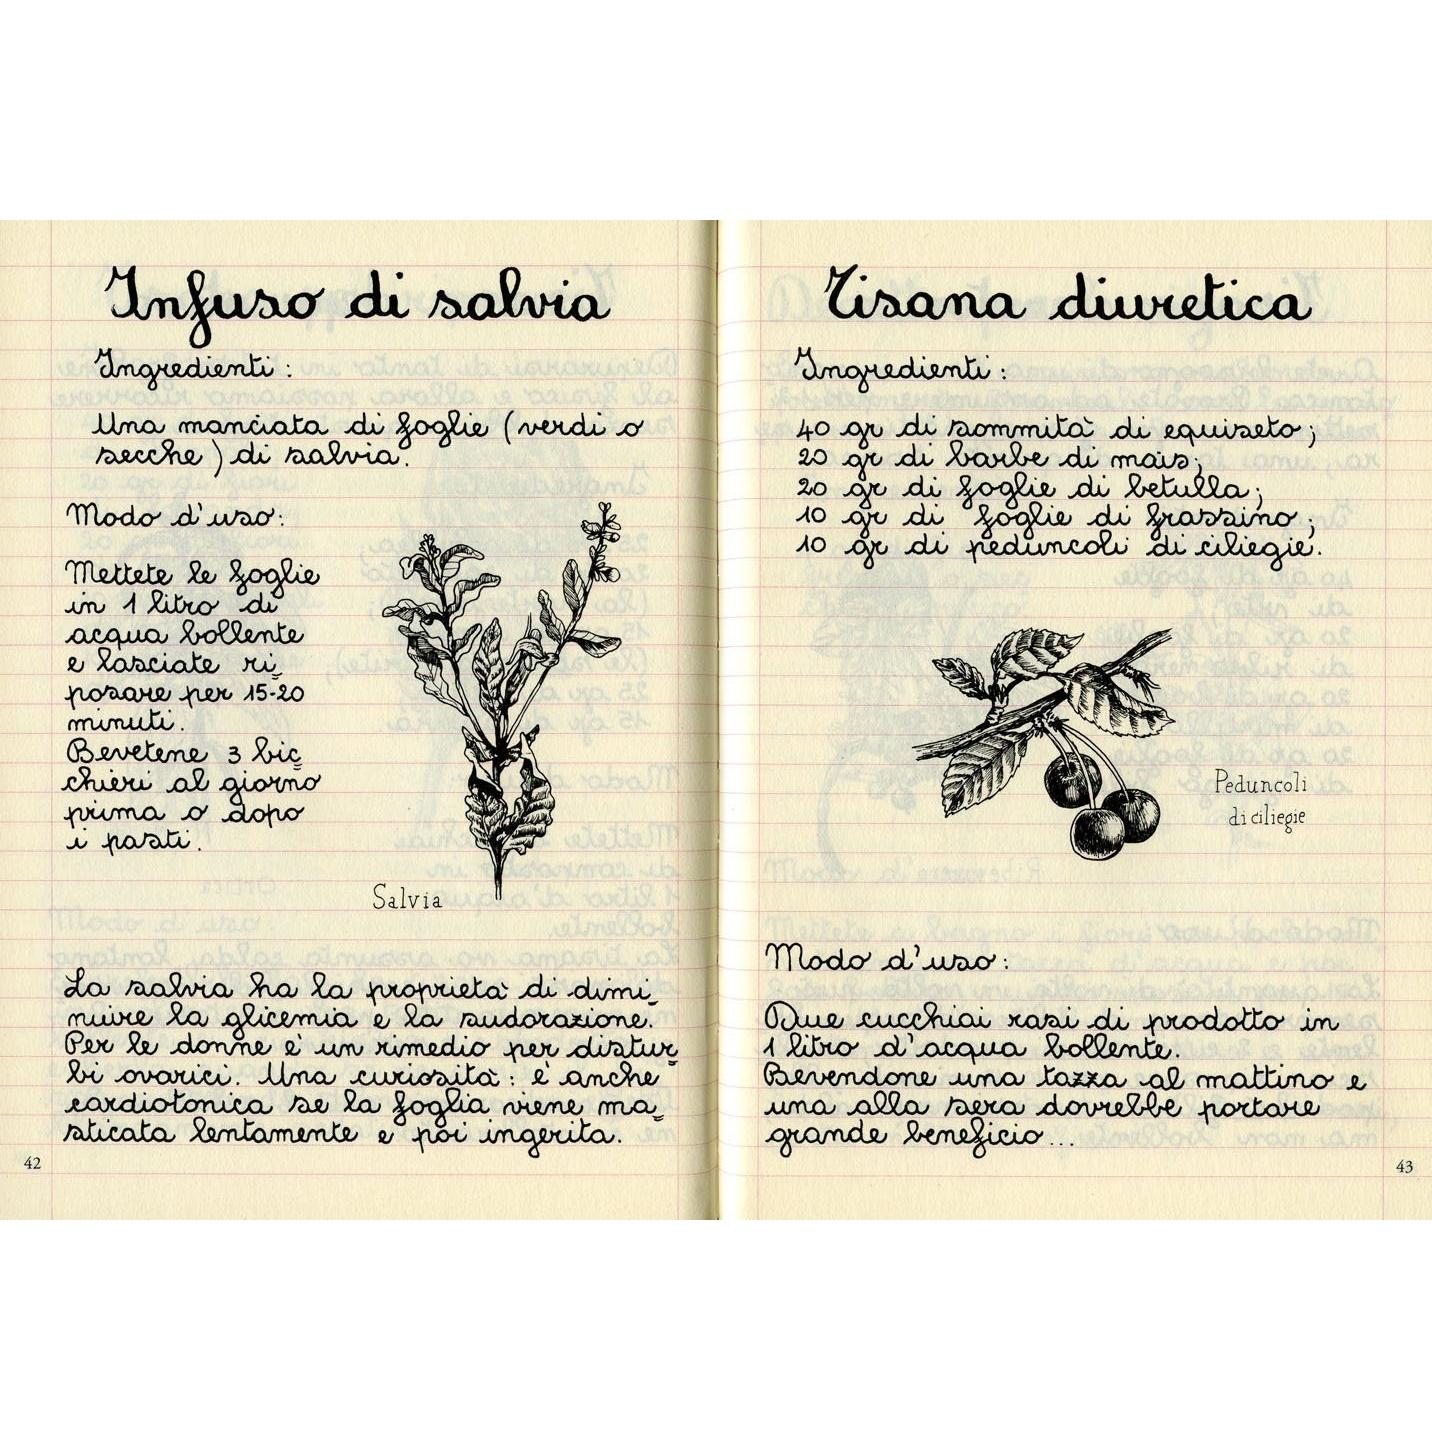 Infuso di salvia
Ingredienti:
Una manciata di foglie (verdi o
secche) di salvia.
Modo d'uso:
Mettete le foglie
in 1 litro di
acqua bollente
e lasciate ri=
posare per 15-20
minuti.
Bevetene 3 bic=
chieri al giorno
prima o dopo
i pasti.
Salvia
La salvia ha la proprietà di dimi=
nuire la glicemia e la sudorazione.
Per le donne è un rimedio per distur=
bi ovarici. Una curiosità: è anche
cardiotonica se la foglia viene ma=
sticata lentamente e poi ingerita.
42
Tisana diuretica
Ingredienti:
40 gr di sommità di equiseto;
20 gr di barbe di mais;
20 gr di foglie di betulla;
10 gr di foglie di frassino;
10 gr di peduncoli di ciliegie.
Peduncoli
di ciliegie
Modo d'uso:
Due cucchiai rasi di prodotto in
1 litro d'acqua bollente.
Bevendone una tazza al mattino e
una alla sera dovrebbe portare
grande beneficio...
43